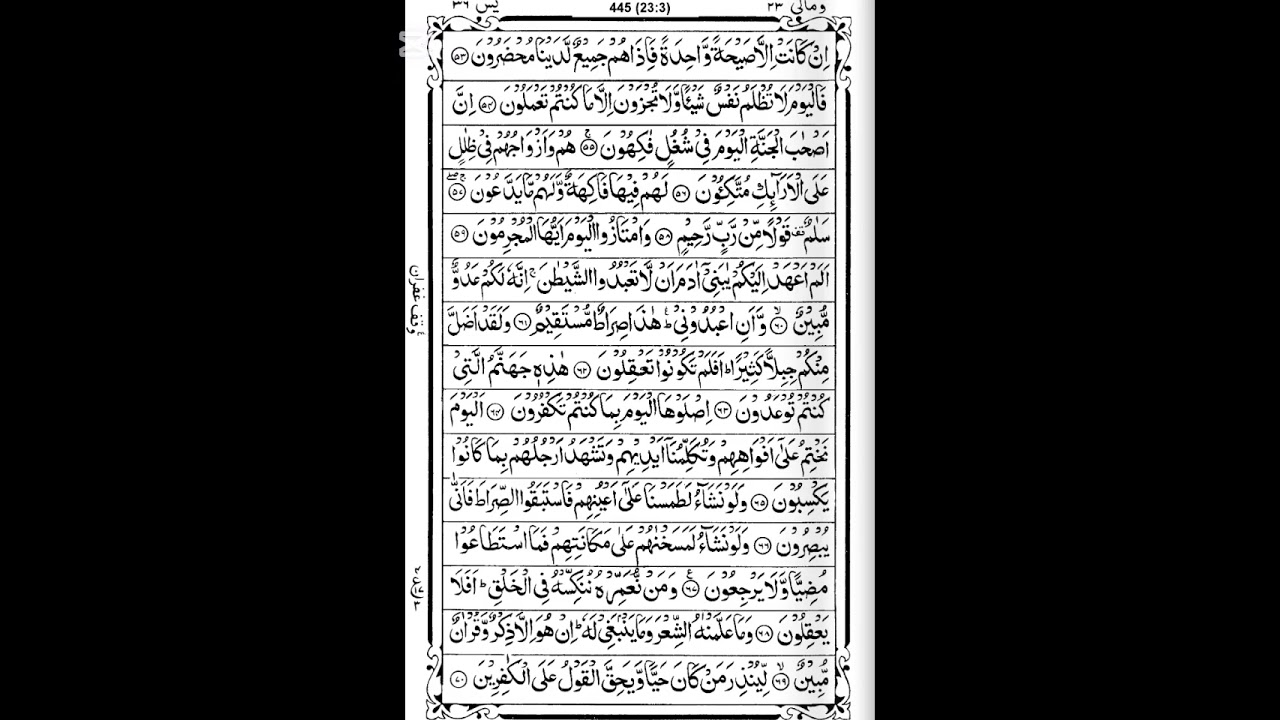 يٰس ٣٦
445 (23:3)
ومالي ٢٣
اِنْ كَانَتْ اِلَّا صَيْحَةً وَّاحِدَةً فَاِذَا هُمْ جَمِيْعٌ لَّدَيْنَا مُحْضَرُوْنَ ٥٣
فَالْيَوْمَ لَا تُظْلَمُ نَفْسٌ شَيْـًٔا وَّلَا تُجْزَوْنَ اِلَّا مَا كُنْتُمْ تَعْمَلُوْنَ ٥٤ اِنَّ
اَصْحٰبَ الْجَنَّةِ الْيَوْمَ فِيْ شُغُلٍ فٰكِهُوْنَ ۚ ٥٥ هُمْ وَاَزْوَاجُهُمْ فِيْ ظِلٰلٍ
عَلَى الْاَرَآئِكِ مُتَّكِـُٔوْنَ ٥٦ لَهُمْ فِيْهَا فَاكِهَةٌ وَّلَهُمْ مَّا يَدَّعُوْنَ ۚۖ ٥٧
سَلٰمٌ ۟ قَوْلًا مِّنْ رَّبٍّ رَّحِيْمٍ ٥٨ وَامْتَازُوا الْيَوْمَ اَيُّهَا الْمُجْرِمُوْنَ ٥٩
اَلَمْ اَعْهَدْ اِلَيْكُمْ يٰبَنِيْٓ اٰدَمَ اَنْ لَّا تَعْبُدُوا الشَّيْطٰنَ ۚ اِنَّهٗ لَكُمْ عَدُوٌّ
مُّبِيْنٌ ۙ ٦٠ وَّاَنِ اعْبُدُوْنِيْ ؕ هٰذَا صِرَاطٌ مُّسْتَقِيْمٌ ٦١ وَلَقَدْ اَضَلَّ
مِنْكُمْ جِبِلًّا كَثِيْرًا ؕ اَفَلَمْ تَكُوْنُوْا تَعْقِلُوْنَ ٦٢ هٰذِهٖ جَهَنَّمُ الَّتِيْ
كُنْتُمْ تُوْعَدُوْنَ ٦٣ اِصْلَوْهَا الْيَوْمَ بِمَا كُنْتُمْ تَكْفُرُوْنَ ٦٤ اَلْيَوْمَ
نَخْتِمُ عَلٰٓى اَفْوَاهِهِمْ وَتُكَلِّمُنَآ اَيْدِيْهِمْ وَتَشْهَدُ اَرْجُلُهُمْ بِمَا كَانُوْا
يَكْسِبُوْنَ ٦٥ وَلَوْ نَشَآءُ لَطَمَسْنَا عَلٰٓى اَعْيُنِهِمْ فَاسْتَبَقُوا الصِّرَاطَ فَاَنّٰى
يُبْصِرُوْنَ ٦٦ وَلَوْ نَشَآءُ لَمَسَخْنٰهُمْ عَلٰى مَكَانَتِهِمْ فَمَا اسْتَطَاعُوْا
مُضِيًّا وَّلَا يَرْجِعُوْنَ ٦٧ وَمَنْ نُّعَمِّرْهُ نُنَكِّسْهُ فِي الْخَلْقِ ؕ اَفَلَا
يَعْقِلُوْنَ ٦٨ وَمَا عَلَّمْنٰهُ الشِّعْرَ وَمَا يَنْۢبَغِيْ لَهٗ ؕ اِنْ هُوَ اِلَّا ذِكْرٌ وَّقُرْاٰنٌ
مُّبِيْنٌ ۙ ٦٩ لِّيُنْذِرَ مَنْ كَانَ حَيًّا وَّيَحِقَّ الْقَوْلُ عَلَى الْكٰفِرِيْنَ ٧٠
وقف غفران